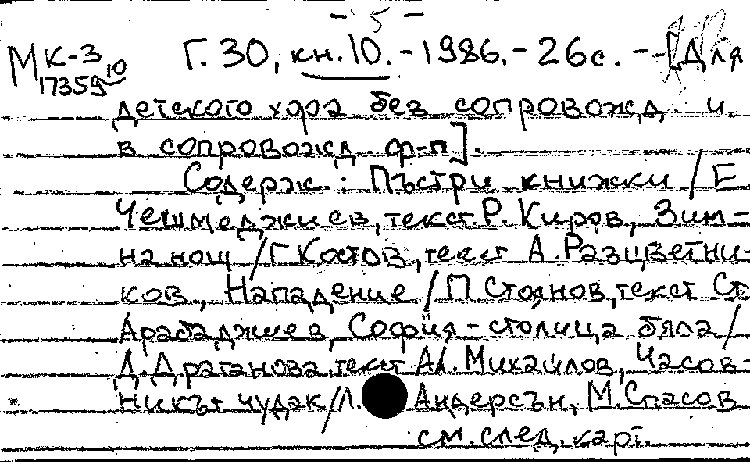 - 5 -
МК-3 Г. 30, кн. 10. - 1986. - 26 с. - [Для
17359 10
детского хора без сопровожд. и
в сопровожд. ф-п].
Содерж.: Пъстри книжки / Е.
Чешмеджиев, текст Р. Киров, Зим-
на нощ / Г. Костов, текст А. Разцветни-
ков, Нападение / П. Стоянов, текст Ст.
Арабаджиев, София - столица бяла /
Д. Драганова, текст Ал. Михайлов, Часов-
никът чудак / Л. Андерсън, М. Спасов
см. след. карт.